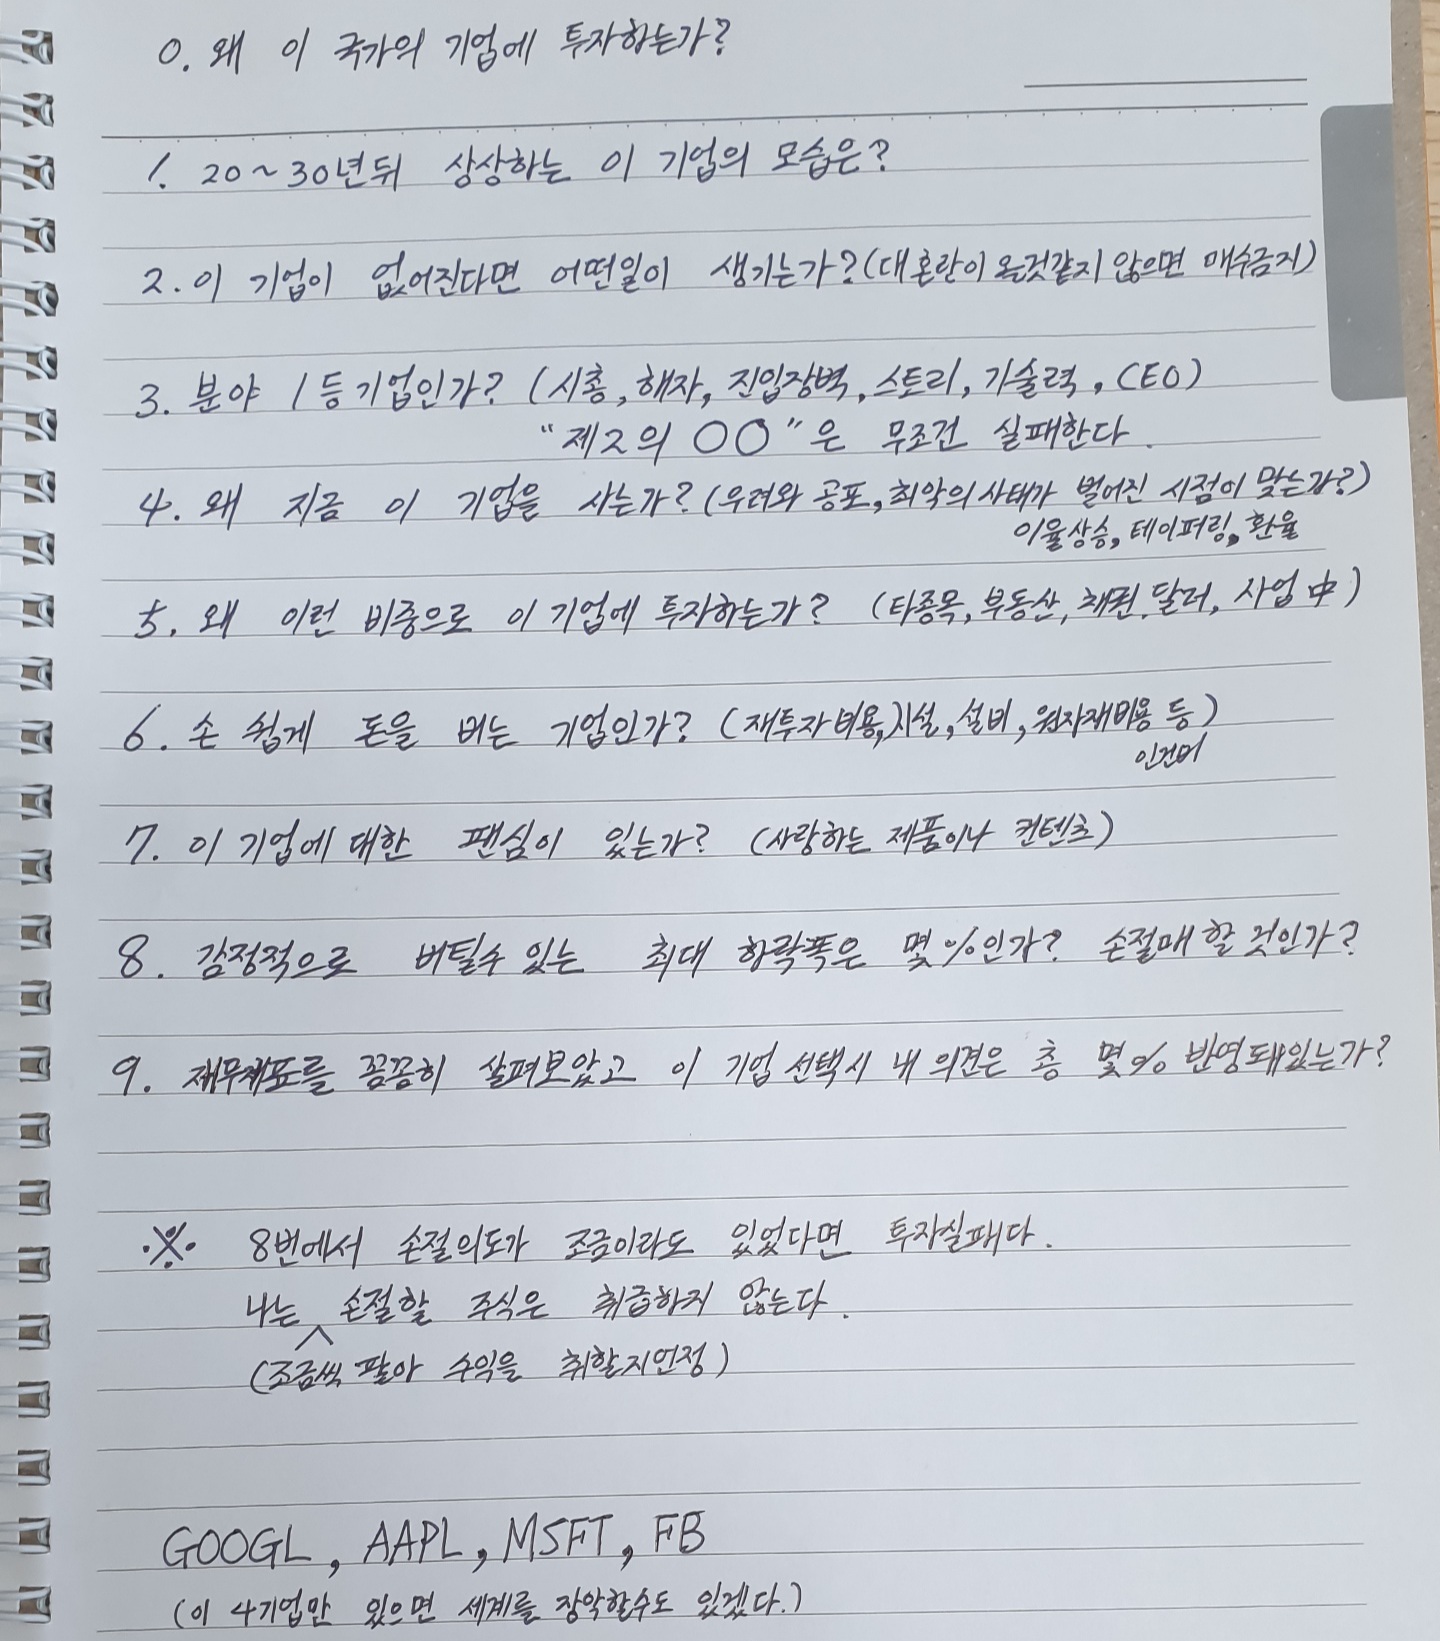 0. 왜 이 국가의 기업에 투자하는가?
1. 20~30년뒤 상상하는 이 기업의 모습은?
2. 이 기업이 없어진다면 어떤일이 생기는가? (대혼란이 올것같지 않으면 매수금지)
3. 분야 1등기업인가? (시총, 해자, 진입장벽, 스토리, 기술력, CEO)
"제2의 OO"은 무조건 실패한다.
4. 왜 지금 이 기업을 사는가? (우려와 공포, 최악의 사태가 벌어진 시점이 맞는가?)
이율상승, 테이퍼링, 환율
5. 왜 이런 비중으로 이 기업에 투자하는가? (타종목, 부동산, 채권, 달러, 사업 中)
6. 손 쉽게 돈을 버는 기업인가? (재투자비용, 시설, 설비, 원자재비용 등)
인건비
7. 이 기업에 대한 팬심이 있는가? (사랑하는 제품이나 컨텐츠)
8. 감정적으로 버틸수 있는 최대 하락폭은 몇%인가? 손절매 할 것인가?
9. 재무제표를 꼼꼼히 살펴보았고 이 기업 선택시 내 의견은 총 몇% 반영돼있는가?
※ 8번에서 손절의도가 조금이라도 있었다면 투자실패다.
나는 손절할 주식은 취급하지 않는다.
(조금씩 팔아 수익을 취할지언정)
GOOGL, AAPL, MSFT, FB
(이 4기업만 있으면 세계를 장악할수도 있겠다.)